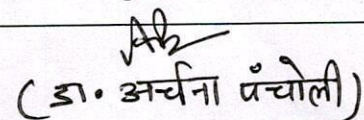 (डा॰ अर्चना पंचोली)